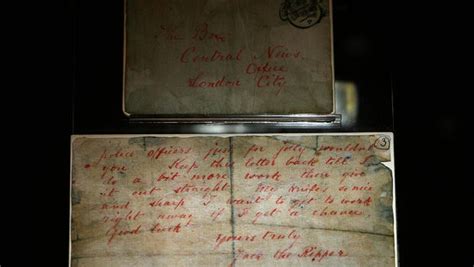 The Boss
Central News
Office
London City
3
police officers just for jolly wouldnt
you Keep this letter back till I
do a bit more work then give
it out straight My knife's so nice
and sharp I want to get to work
right away if I get a chance.
Good luck
Yours truly
Jack the Ripper